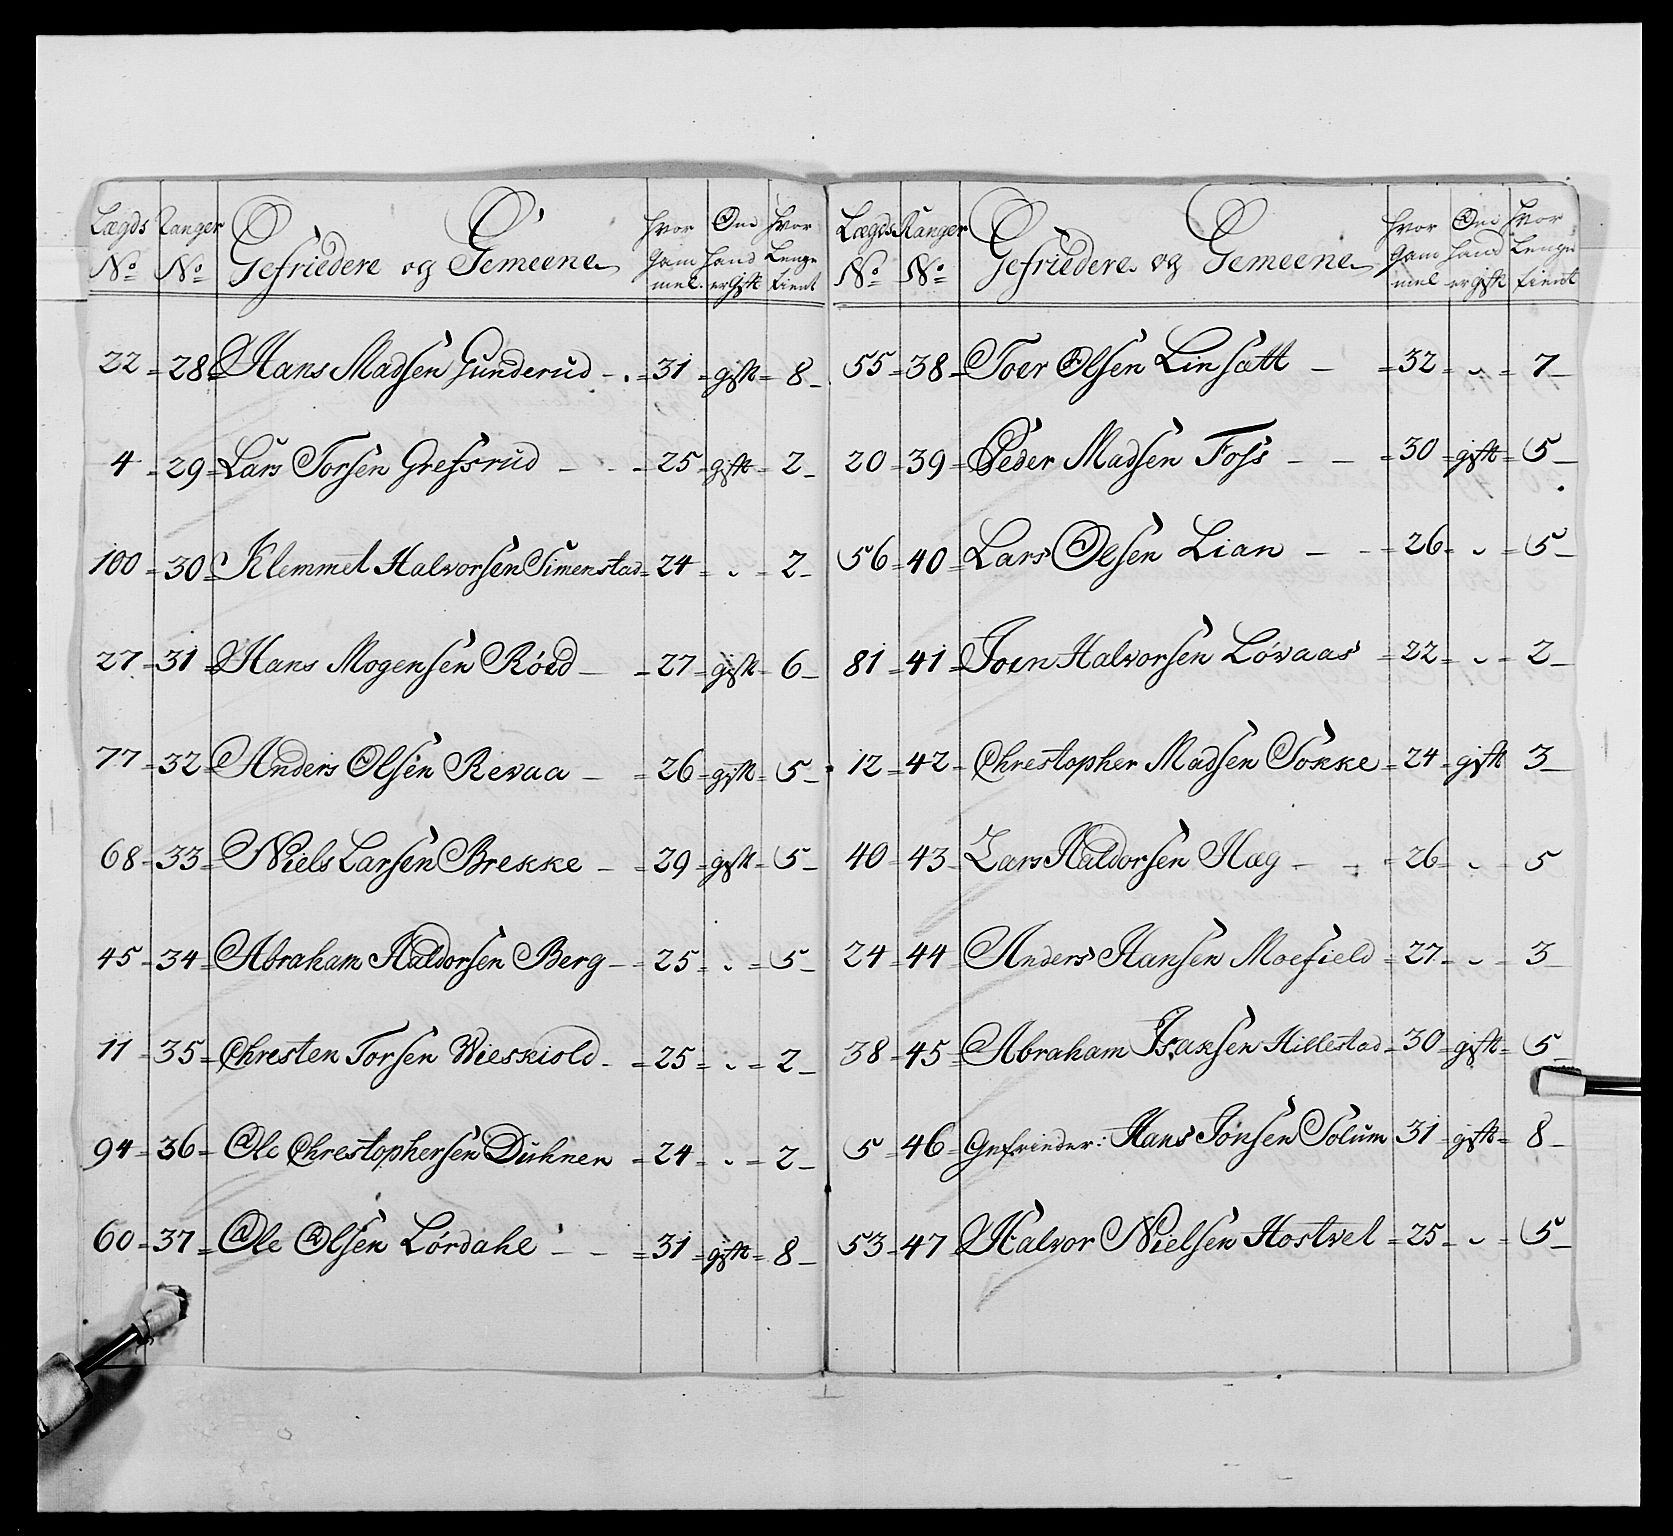 Lægds Ranger Gefriedere og Gemeene hvor Om hvor
No No gam hand Lenge
mel. er gift tient
22 = 28 = Hans Madsen Gunderud - . = 31 = gift = 8 -
4 = 29 = Lars Torsen Grefsrud - - = 25 = gift = 2 -
100 = 30 = Klemmet Halvorsen Simenstad = 24 = . = 2 -
27 = 31 = Hans Mogensen Röed - = 27 = gift = 6 -
77 = 32 = Anders Olsen Revaa - = 26 = gift = 5 -
68 = 33 = Niels Larsen Brekke - = 29 = gift = 5 -
45 = 34 = Abraham Haldorsen Berg - = 25 = . = 5 -
11 = 35 = Chresten Torsen Wieskiold - = 25 = . = 2 -
94 = 36 = Ole Chrestophersen Duhnen = 24 = . = 2 -
60 = 37 = Ole Olsen Lördahl - - = 31 = gift = 8 -
Lægds Ranger Gefriedere og Gemeene hvor Om hvor
No No gam hand Lenge
mel er gift tient
55 = 38 = Toer Olsen Linsætt - = 32 = . = 7 -
20 = 39 = Peder Madsen Foss - - = 30 = gift = 5 -
56 = 40 = Lars Olsen Lian - - = 26 = . = 5 -
81 = 41 = Joen Halvorsen Lövaas = 22 = . = 2 -
12 = 42 = Chrestopher Madsen Sokke = 24 = gift 3 -
40 = 43 = Lars Haldorsen Hæg - - = 26 = . = 5
24 = 44 = Anders Hansen Moefield = 27 = . = 3
38 = 45 = Abraham Isaksen Hillestad = 30 = gift = 5 -
5 = 46 = Gefrieder: Hans Jonsen Solum 31 = gift = 8 -
53 = 47 = Halvor Nielsen Hostvet = 25 = . = 5 -